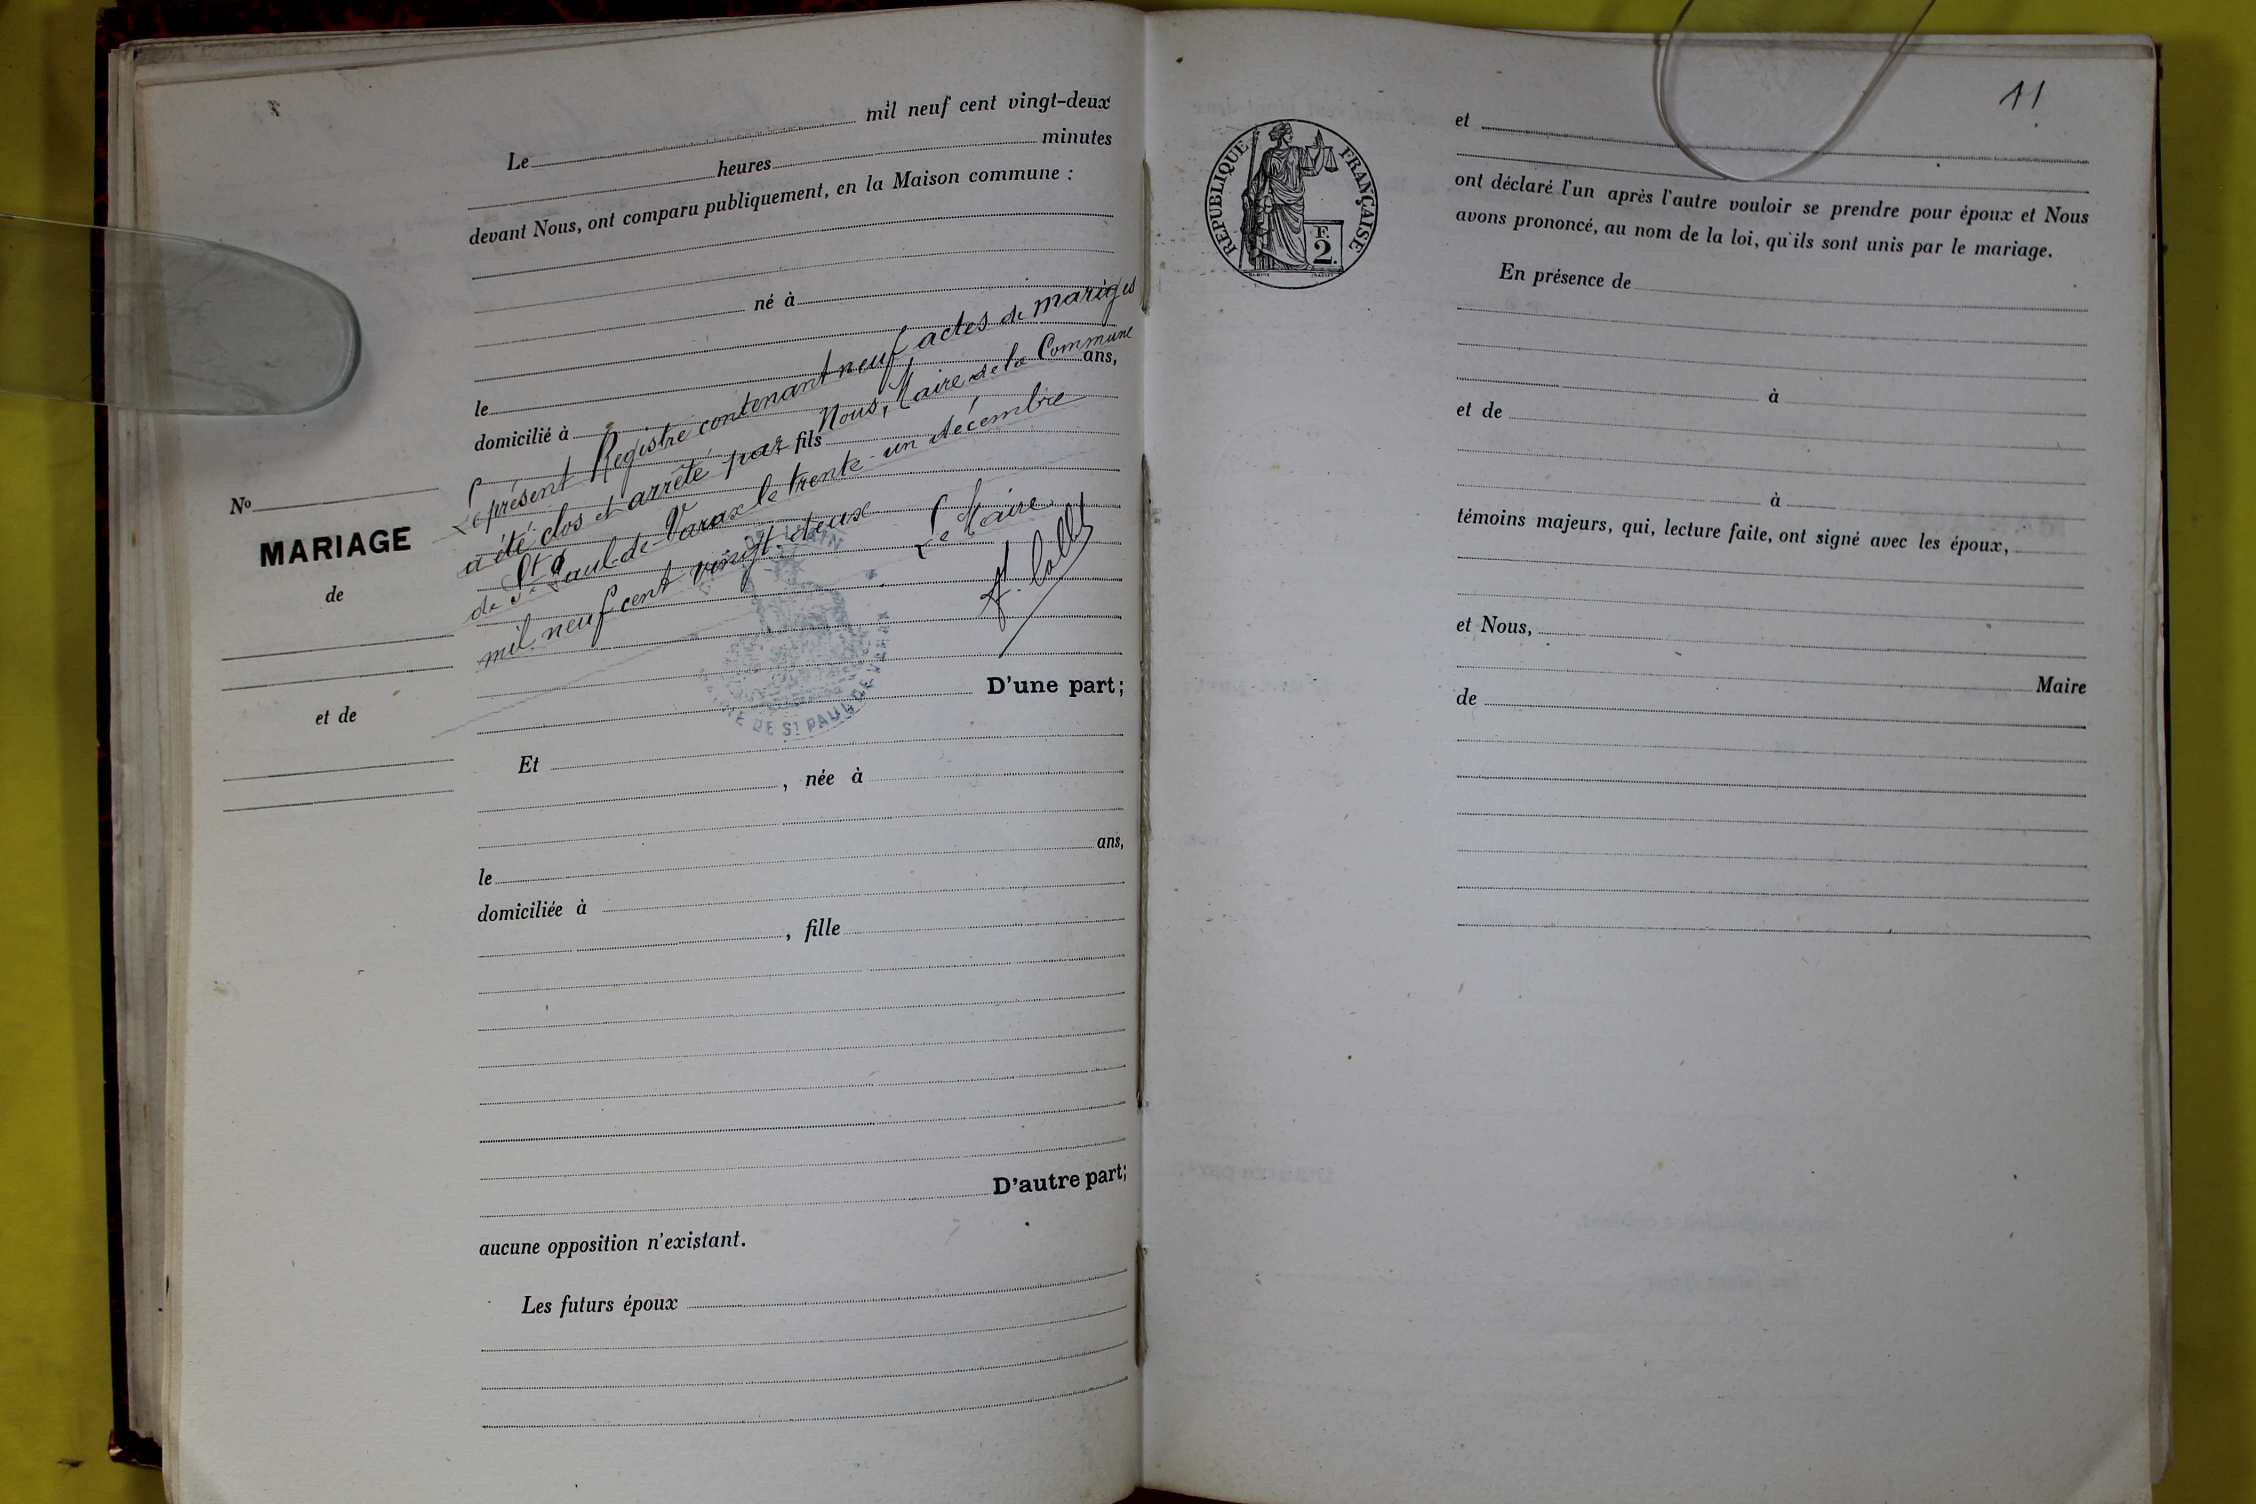 Le mil neuf cent vingt-deux
heures minutes
devant Nous, ont comparu publiquement, en la Maison commune :
né à
le ans,
domicilié à
fils
Le présent Registre contenant neuf actes de mariges
a été clos et arrêté par Nous, Maire de la Commune
de St Paul de Varax le trente-un décembre
mil neuf cent vingt-deux Le Maire
No
MARIAGE
de
et de
D'une part;
MAIRIE DE St PAUL DE VARAX
Et
, née à
le ans,
domiciliée à
, fille
D'autre part;
aucune opposition n'existant.
Les futurs époux
11
RÉPUBLIQUE FRANÇAISE
F.
2.
et
ont déclaré l'un après l'autre vouloir se prendre pour époux et Nous
avons prononcé, au nom de la loi, qu'ils sont unis par le mariage.
En présence de
à
et de
à
témoins majeurs, qui, lecture faite, ont signé avec les époux,
et Nous,
Maire
de